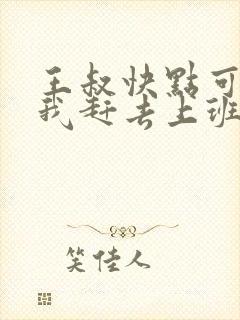 王叔快點可
我赶去上班
笑佳人